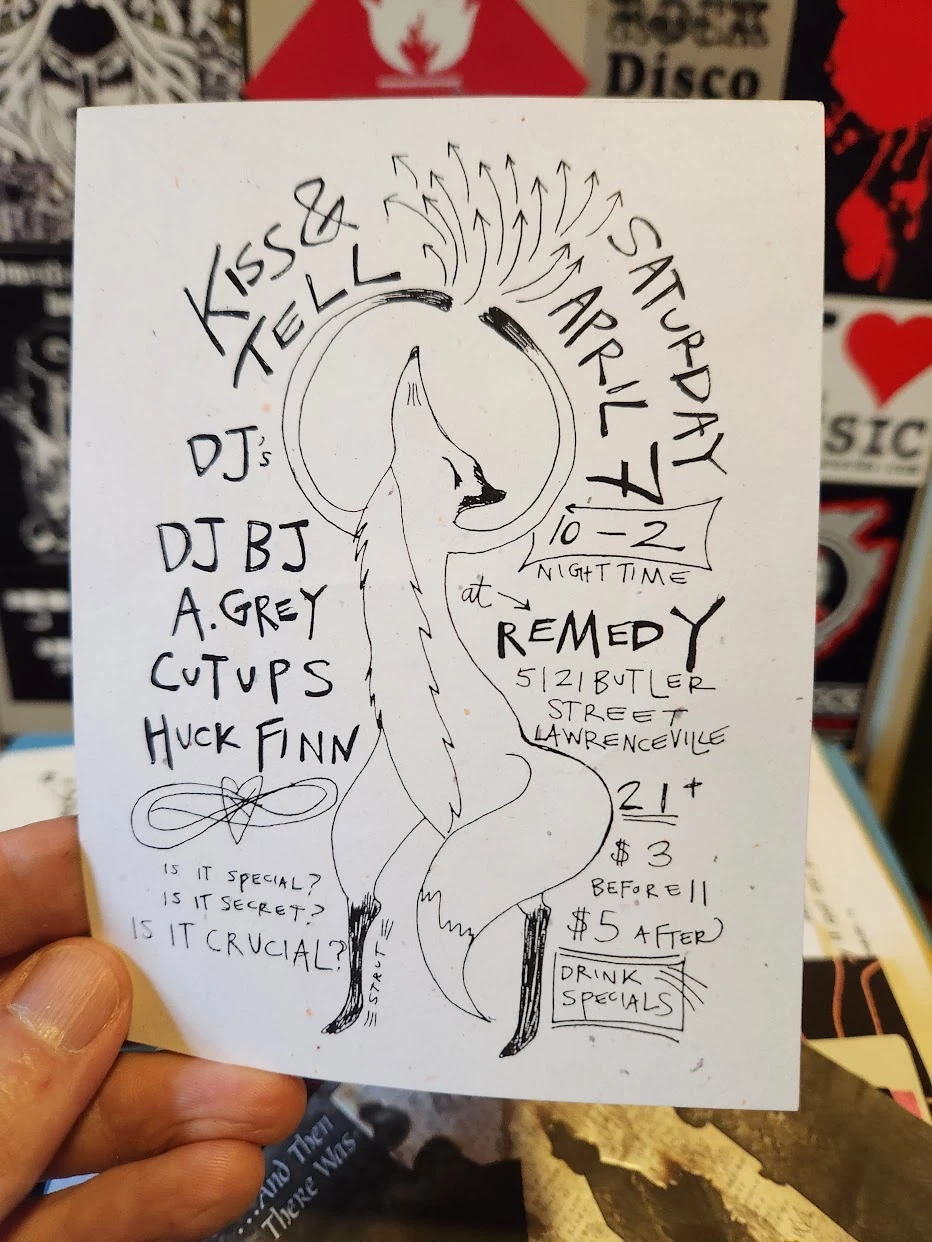 KISS &
TELL
SATURDAY
APRIL 7
10 - 2
NIGHT TIME
at
REMEDY
5121 BUTLER
STREET
LAWRENCEVILLE
21+
$3
BEFORE 11
$5 AFTER
DRINK
SPECIALS
DJ's
DJ BJ
A. GREY
CUTUPS
HUCK FINN
IS IT SPECIAL?
IS IT SECRET?
IS IT CRUCIAL?
STRUT
ROCK
Disco
SIC
...And Then
There Was